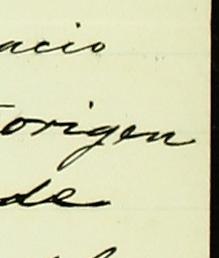 acio
origen
de